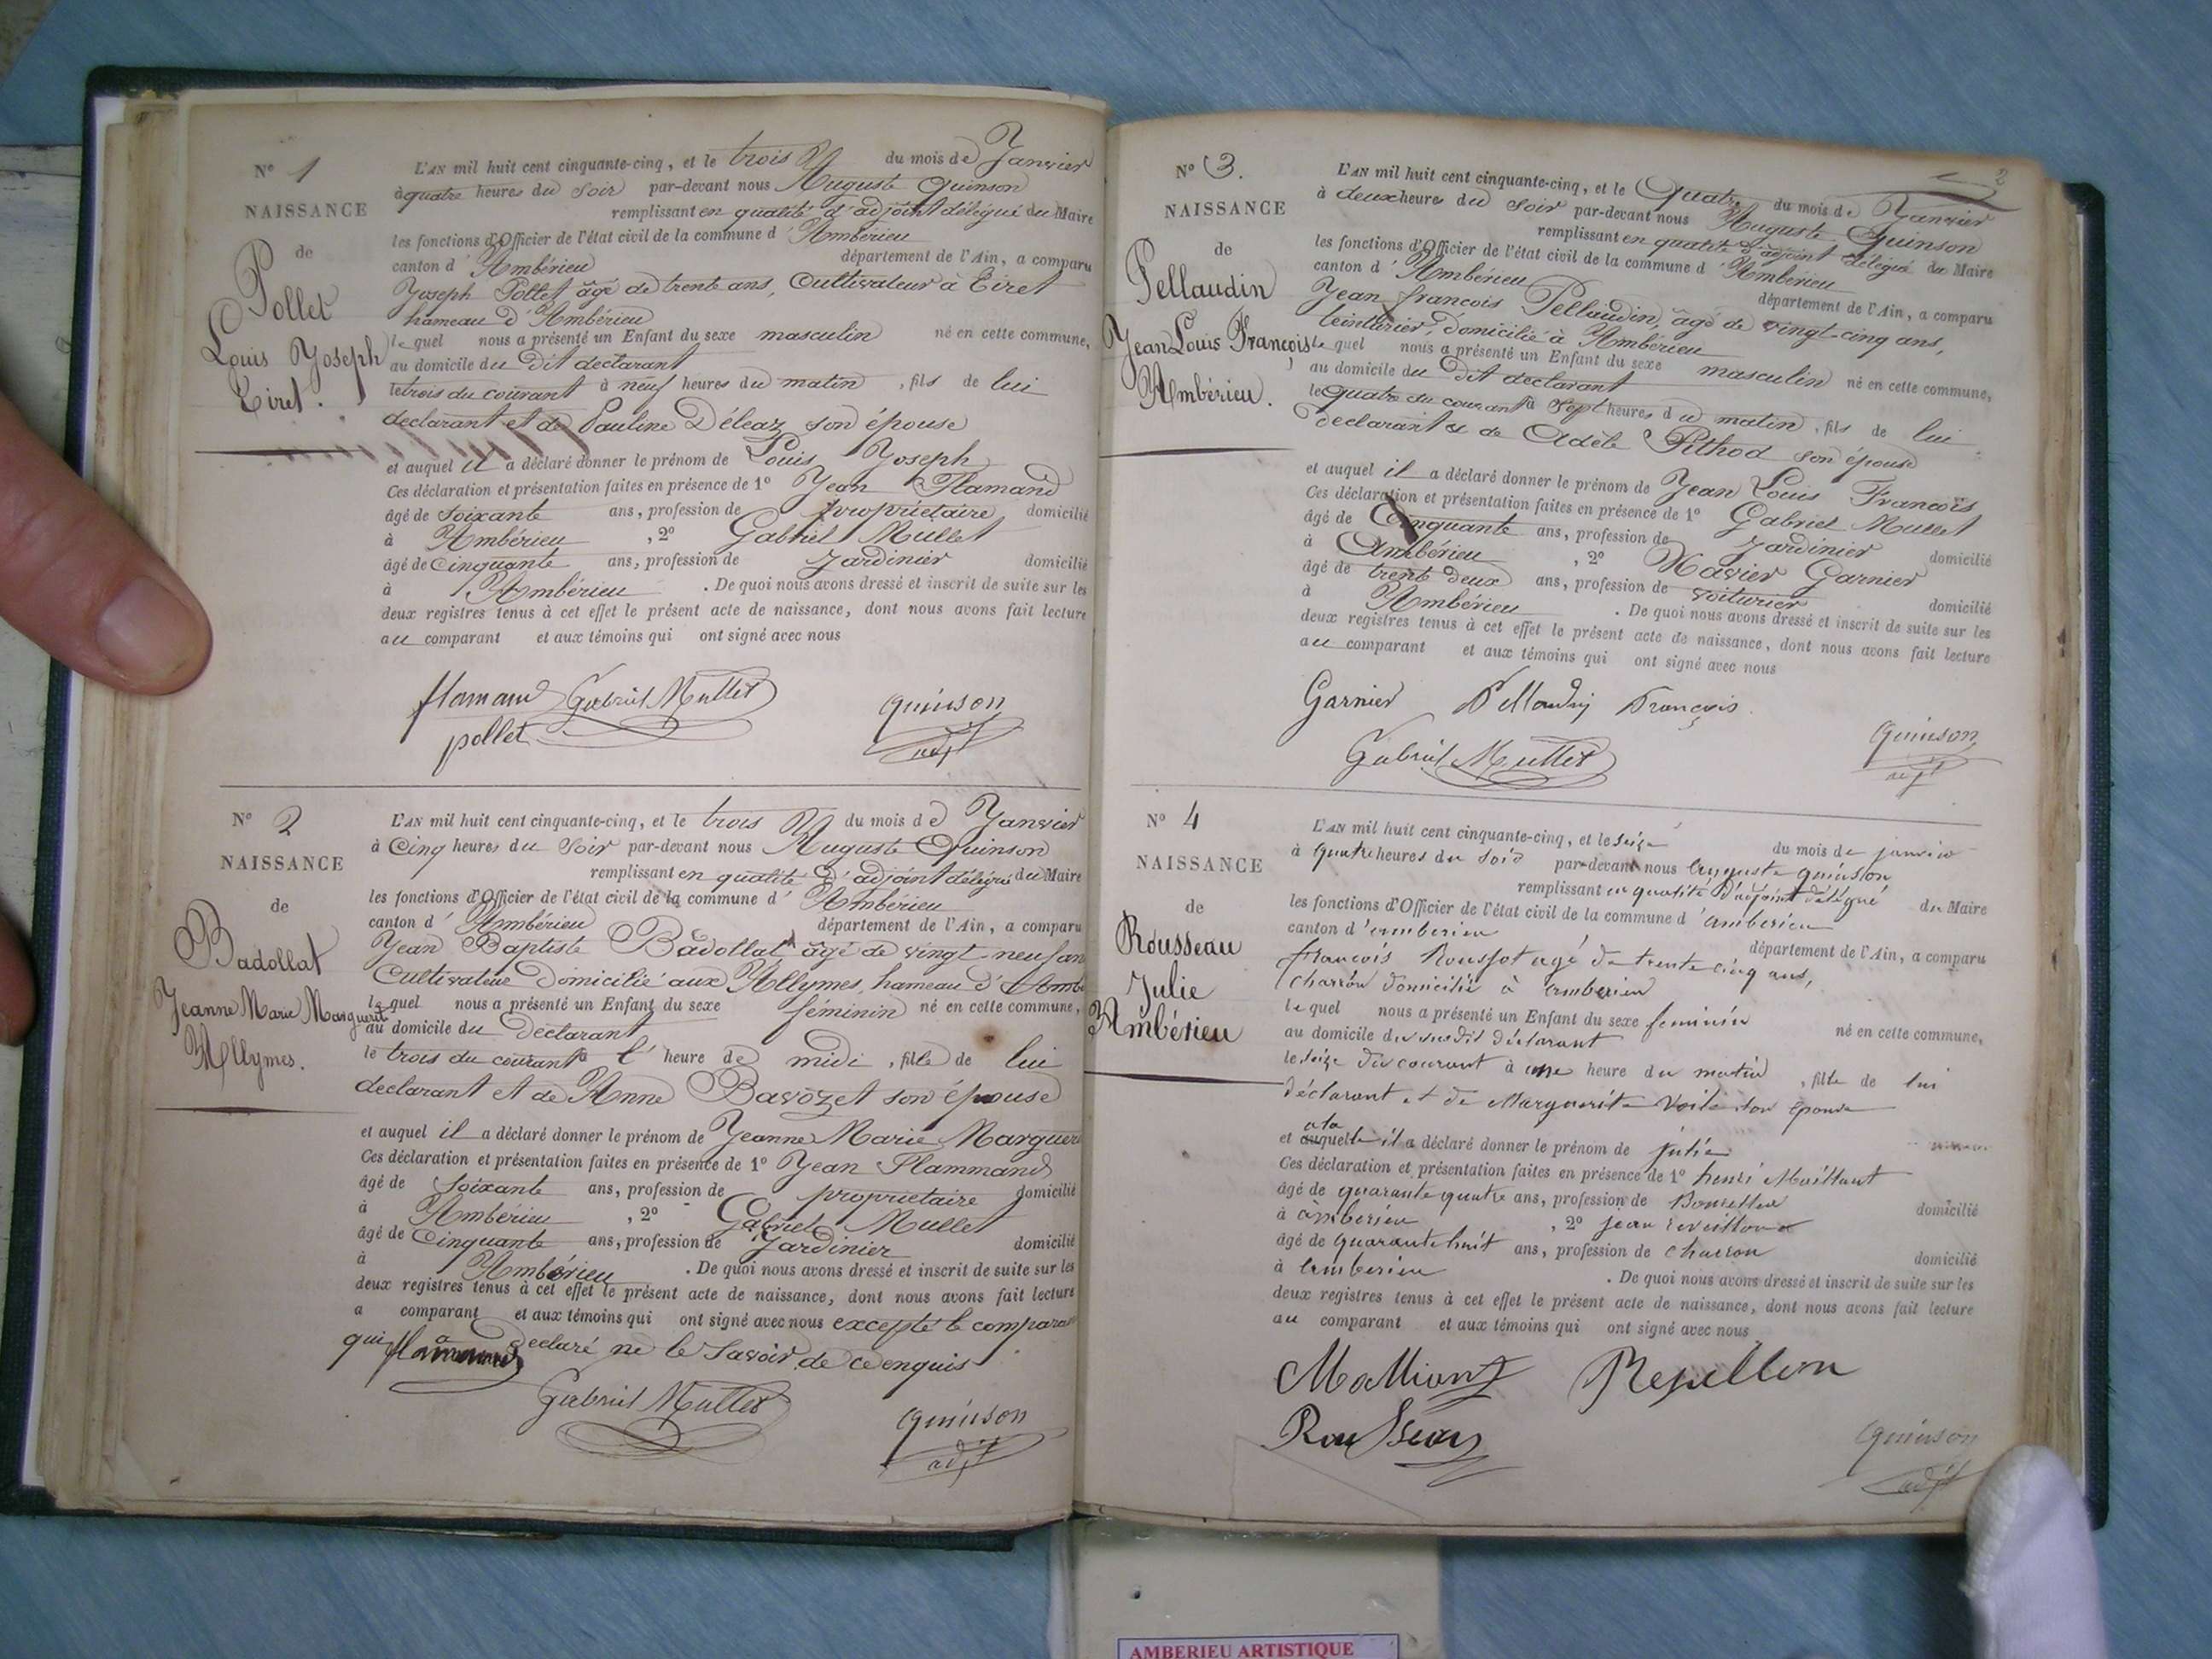 N° 1
NAISSANCE
de
Pollet
Louis Joseph
Tiret.
L'AN mil huit cent cinquante-cinq, et le trois du mois de Janvier
à quatre heures du Soir par-devant nous Auguste Quinson
remplissant en qualité d'adjoint délégué du Maire
les fonctions d'Officier de l'état civil de la commune d'Ambérieu
canton d'Ambérieu département de l'Ain, a comparu
Joseph Pollet âgé de trente ans, Cultivateur à Tiret
hameau d'Ambérieu
lequel nous a présenté un Enfant du sexe masculin né en cette commune,
au domicile du dit declarant
le trois du courant à neuf heures du matin, fils de lui
declarant et de Pauline Déleaz son épouse
et auquel il a déclaré donner le prénom de Louis Joseph
Ces déclaration et présentation faites en présence de 1° Jean Flamand
âgé de Soixante ans, profession de propriétaire domicilié
à Ambérieu, 2° Gabriel Mullet
âgé de Cinquante ans, profession de Jardinier domicilié
à Ambérieu. De quoi nous avons dressé et inscrit de suite sur les
deux registres tenus à cet effet le présent acte de naissance, dont nous avons fait lecture
au comparant et aux témoins qui ont signé avec nous
flamand Gabriel Mullet quinson
pollet adjt
N° 2
NAISSANCE
de
Badollat
Jeanne Marie Marguerite
Allymes.
L'AN mil huit cent cinquante-cinq, et le trois du mois de Janvier
à Cinq heures du Soir par-devant nous Auguste Quinson
remplissant en qualité d'adjoint délégué du Maire
les fonctions d'Officier de l'état civil de la commune d'Ambérieu
canton d'Ambérieu département de l'Ain, a comparu
Jean Baptiste Badollat âgé de vingt neuf an
Cultivateur Domicilié aux Allymes, hameau d'Ambé
lequel nous a présenté un Enfant du sexe féminin né en cette commune,
au domicile du declarant
le trois du courant à l' heure de midi, fille de lui
declarant et de Anne Bavozet son épouse
et auquel il a déclaré donner le prénom de Jeanne Marie Marguer
Ces déclaration et présentation faites en présence de 1° Jean Flammand
âgé de Soixante ans, profession de propriétaire domicilié
à Ambérieu, 2° Gabriel Mullet
âgé de Cinquante ans, profession de Jardinier domicilié
à Ambérieu. De quoi nous avons dressé et inscrit de suite sur les
deux registres tenus à cet effet le présent acte de naissance, dont nous avons fait lecture
a comparant et aux témoins qui ont signé avec nous excepté le comparan
qui a declaré ne le Savoir de ce enquis
flamand
Gabriel Mullet quinson
adjt
2
N° 3.
NAISSANCE
de
Pellaudin
Jean Louis François
Ambérieu.
L'AN mil huit cent cinquante-cinq, et le Quatre du mois de Janvier
à deux heures du Soir par-devant nous Auguste Quinson
remplissant en qualité d'adjoint délégué du Maire
les fonctions d'Officier de l'état civil de la commune d'Ambérieu
canton d'Ambérieu département de l'Ain, a comparu
Jean françois Pellaudin, âgé de vingt-cinq ans,
teinturier, domicilié à Ambérieu
lequel nous a présenté un Enfant du sexe masculin né en cette commune,
au domicile du dit declarant
le Quatre du courant à Sept heures du matin, fils de lui
declarant & de Adèle Pithod son épouse
et auquel il a déclaré donner le prénom de Jean Louis François
Ces déclaration et présentation faites en présence de 1° Gabriel Mullet
âgé de Cinquante ans, profession de Jardinier domicilié
à Ambérieu, 2° Xavier Garnier
âgé de trente deux ans, profession de voiturier domicilié
à Ambérieu. De quoi nous avons dressé et inscrit de suite sur les
deux registres tenus à cet effet le présent acte de naissance, dont nous avons fait lecture
au comparant et aux témoins qui ont signé avec nous
Garnier Pellaudin François
Gabriel Mullet quinson
adjt
N° 4
NAISSANCE
de
Rousseau
Julie
Ambérieu
L'AN mil huit cent cinquante-cinq, et le seize du mois de janvier
à quatre heures du soir par-devant nous auguste quinson
remplissant en qualité d'adjoint délégué du Maire
les fonctions d'Officier de l'état civil de la commune d'amberieu
canton d'amberieu département de l'Ain, a comparu
françois agé de trente cinq ans,
charron domicilié à amberieu
lequel nous a présenté un Enfant du sexe feminin né en cette commune,
au domicile du susdit déclarant
le seize du courant à une heure du matin, fille de lui
déclarant et de Marguerite son épouse
et auquel il a déclaré donner le prénom de julie
Ces déclaration et présentation faites en présence de 1° henri
âgé de quarante quatre ans, profession de domicilié
à amberieu, 2° jean
âgé de quarante huit ans, profession de charron domicilié
à amberieu. De quoi nous avons dressé et inscrit de suite sur les
deux registres tenus à cet effet le présent acte de naissance, dont nous avons fait lecture
au comparant et aux témoins qui ont signé avec nous
Rousseau quinson
adjt
AMBERIEU ARTISTIQUE